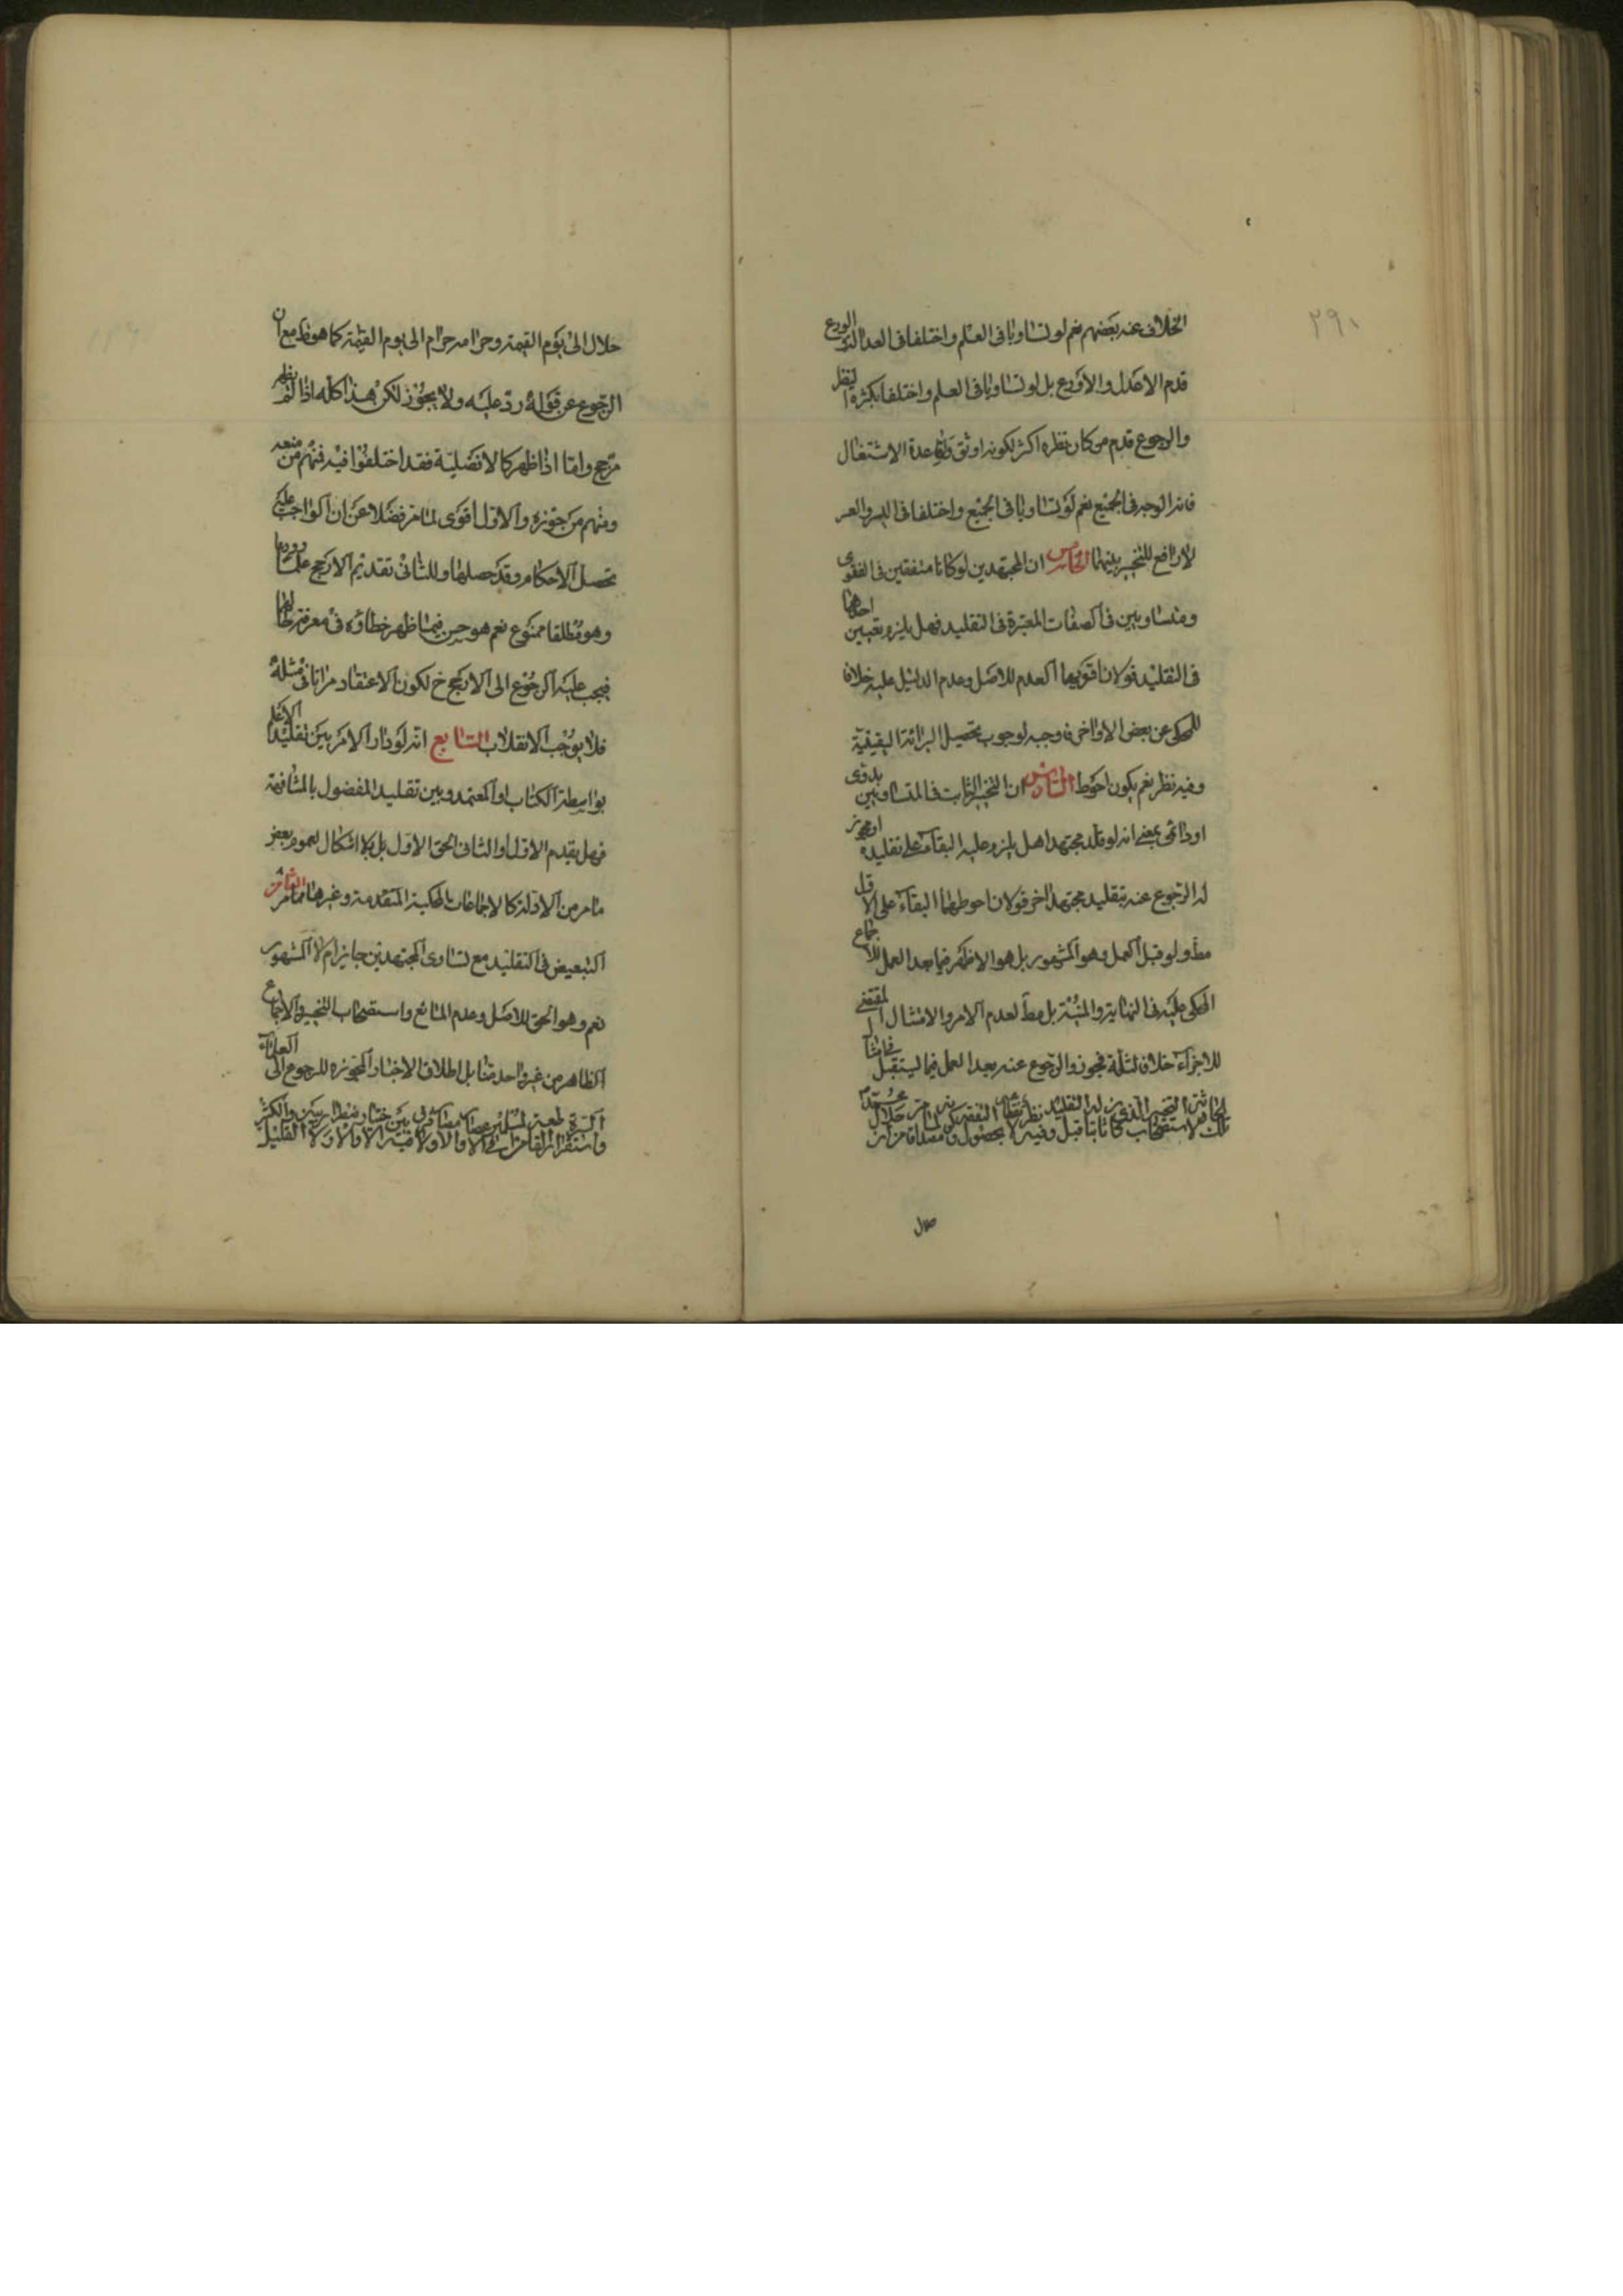 ٢٩٠
الخلاف عنه بعضهم نعم لو تساويا فى العلم واختلفا فى العدالة والورع
قدم الاعدل والاورع بل لو تساويا فى العلم واختلفا بكثرة النظر
والرجوع قدم من كان نظره اكثر لكونه اوثق ولقاعدة الاشتغال
فانه الوجه فى الجميع نعم لو تساويا فى الجميع واختلفا فى اليسر والعسر
لا رافع للتخيير بينهما الخامس ان المجتهدين لو كانا متفقين فى الفتوى
ومتساويين فى الصفات المعتبرة فى التقليد فهل يلزم تعيين احدهما
فى التقليد قولان اقويهما العدم للاصل وعدم الدليل عليه خلافا
للمحكى عن بعض الاواخر فاوجبه لوجوب تحصيل البرائة اليقينية
وفيه نظر نعم يكون احوط السادس ان التخيير الثابت فى المتساويين بدوى
او دائمى بمعنى انه لو قلد مجتهدا هل يلزم عليه البقاء على تقليده او يجوز
له الرجوع عنه بتقليد مجتهد اخر قولان احوطهما البقاء على الاول
مط ولو قبل العمل وهو المشهور بل هو الاظهر فيما بعد العمل للاجماع
المحكى عليه فى النهاية والمنية بل مط لعدم الامر والامتثال المقتضى
للاجزاء خلافا لثلثة فجوزوا الرجوع عنه بعد العمل فيما يستقبل
صلال
حلال الى يوم القيمة وحرامه حرام الى يوم القيمة كما هو ظ مع ان
الرجوع عن قوله رد عليه ولا يجوز لكن هذا كله اذا لم يظهر
مرجح واما اذا ظهر كالافضلية فقد اختلفوا فيه فمنهم من منعه
ومنهم من جوزه والاول اقوى لما مر فضلا عن ان الواجب عليه
تحصيل الاحكام وقد حصلها وللثانى تقديم الارجح علما وورعا
وهو مطلقا ممنوع نعم هو حسن فيما ظهر خطاؤه فى معرفته لها
فيجب عليه الرجوع الى الارجح ح لكون الاعتقاد مراتا فى مثله
فلا يوجب الانقلاب السابع انه لو دار الامر بين تقليد الاعلم
بواسطة الكتاب او المعتمد وبين تقليد المفضول بالمشافهة
فهل يقدم الاول او الثانى الحق الاول بل بلا اشكال لعموم بعض
ما مر من الادلة كالاجماعات المحكية المتقدمة وغيرها مما مر الثامن
التبعيض فى التقليد مع تساوى المجتهدين جايز ام لا المشهور
نعم وهو الحق للاصل وعدم المانع واستصحاب التخيير والاجماع
الظاهر من غير واحد مضا بل اطلاق الاخبار المجوزه للرجوع الى العلماء